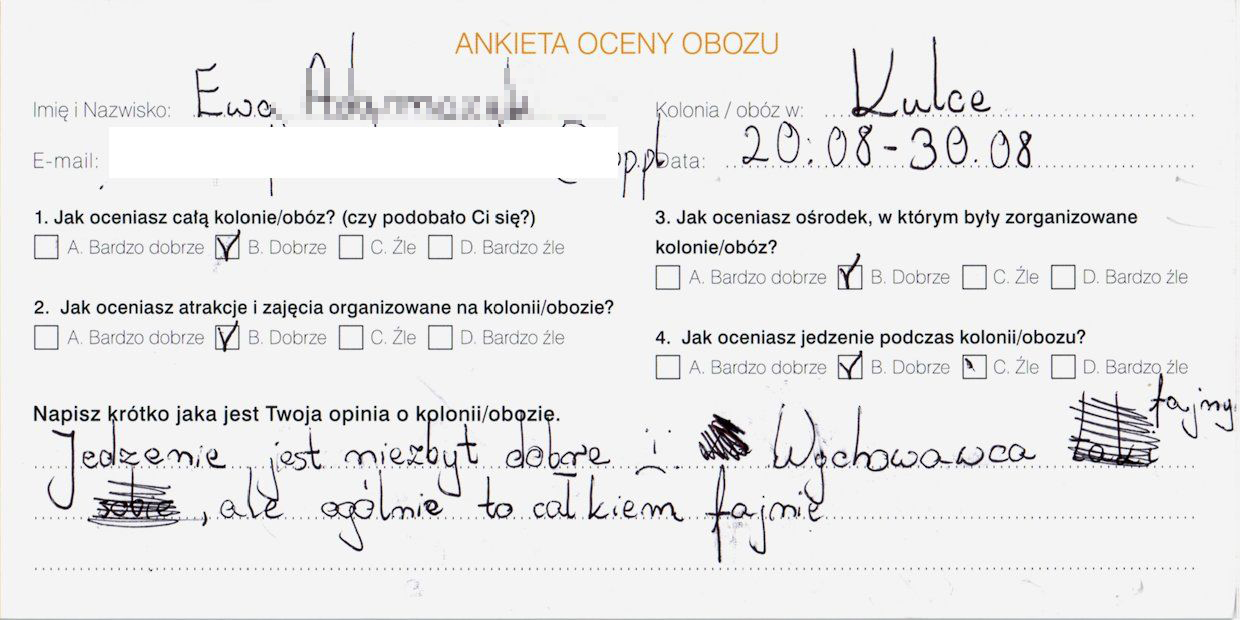 ANKIETA OCENY OBOZU
Imię i Nazwisko: Ewa
Kolonia / obóz w: Kulce
E-mail: pp.pl
Data: 20.08-30.08
1. Jak oceniasz całą kolonie/obóz? (czy podobało Ci się?)
A. Bardzo dobrze B. Dobrze C. Źle D. Bardzo źle
2. Jak oceniasz atrakcje i zajęcia organizowane na kolonii/obozie?
A. Bardzo dobrze B. Dobrze C. Źle D. Bardzo źle
3. Jak oceniasz ośrodek, w którym były zorganizowane
kolonie/obóz?
A. Bardzo dobrze B. Dobrze C. Źle D. Bardzo źle
4. Jak oceniasz jedzenie podczas kolonii/obozu?
A. Bardzo dobrze B. Dobrze C. Źle D. Bardzo źle
Napisz krótko jaka jest Twoja opinia o kolonii/obozie.
Jedzenie jest niezbyt dobre :( Wychowawca fajny
, ale ogólnie to całkiem fajnie